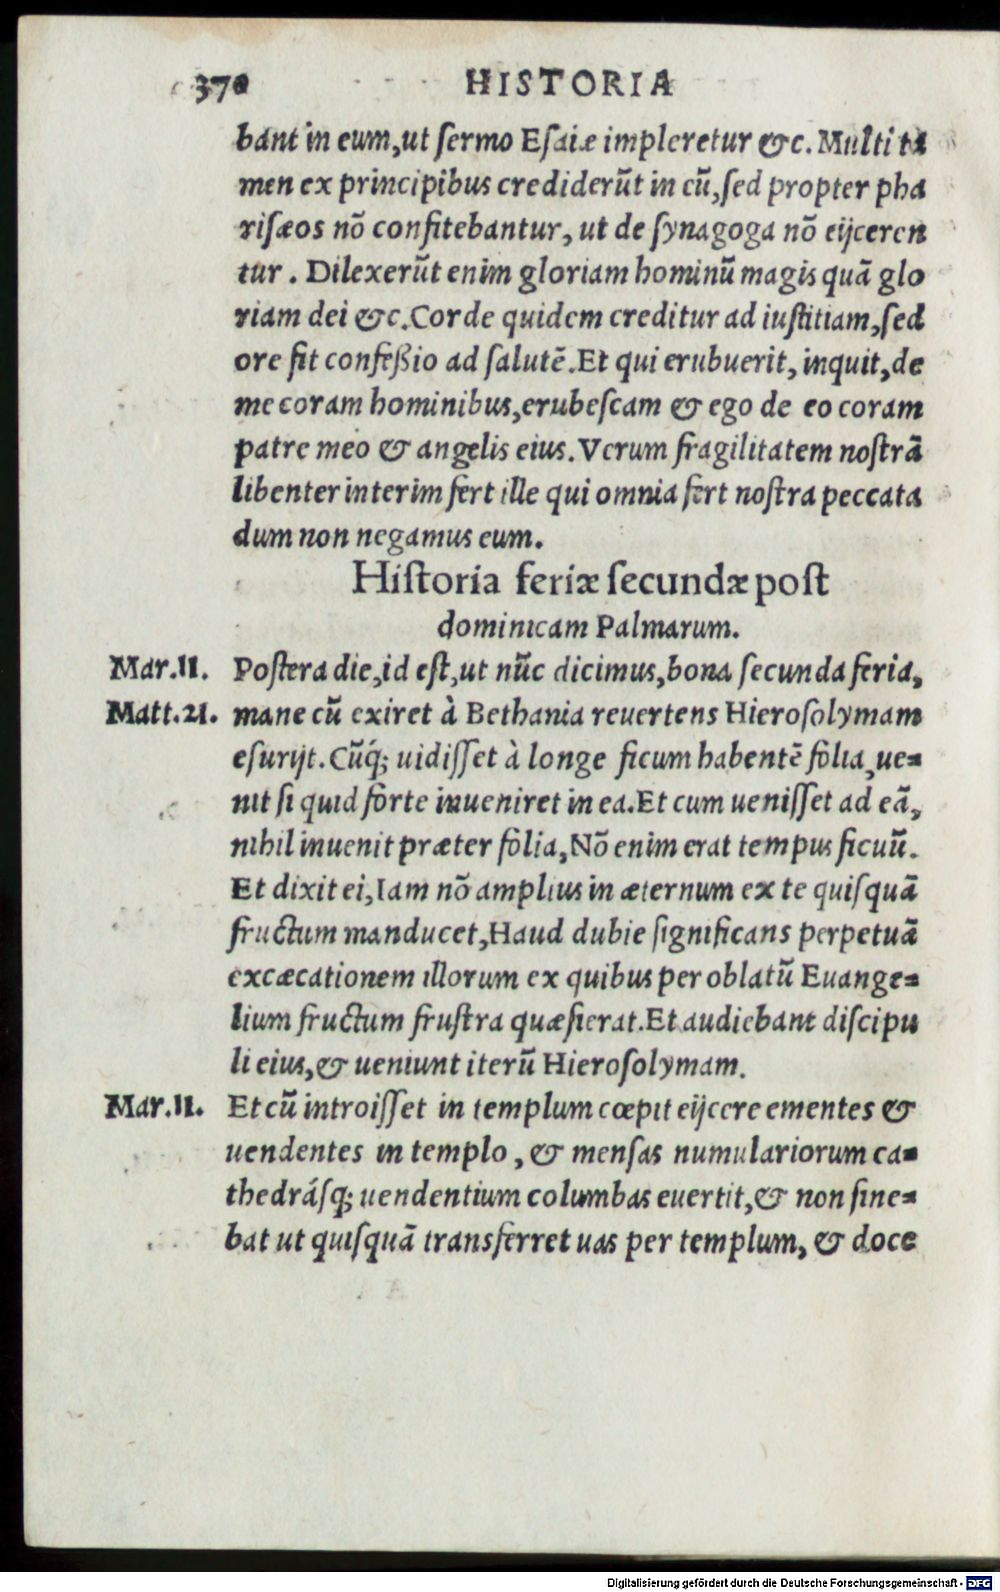 370 HISTORIA
bant in eum, ut ſermo Eſaiæ impleretur &c. Multi ta
men ex principibus crediderũt in eũ, ſed propter pha
riſæos nõ confitebantur, ut de ſynagoga nõ eijceren
tur. Dilexerũt enim gloriam hominũ magis quã glo
riam dei &c. Corde quidem creditur ad iuſtitiam, ſed
ore fit confeßio ad ſalutẽ. Et qui erubuerit, inquit, de
me coram hominibus, erubeſcam & ego de eo coram
patre meo & angelis eius. Verum fragilitatem noſtrã
libenter interim fert ille qui omnia fert noſtra peccata
dum non negamus eum.
Hiſtoria feriæ ſecundæ poſt
dominicam Palmarum.
Mar.11. Poſtera die, id eſt, ut nũc dicimus, bona ſecunda feria,
Matt.21. mane cũ exiret à Bethania reuertens Hieroſolymam
eſurijt. Cũq́; uidiſſet à longe ficum habentẽ folia, ue=
nit ſi quid forte inueniret in ea. Et cum ueniſſet ad eã,
nihil inuenit præter folia, Nõ enim erat tempus ficuũ.
Et dixit ei, Iam nõ amplius in æternum ex te quiſquã
fructum manducet, Haud dubie ſignificans perpetuã
excæcationem illorum ex quibus per oblatũ Euange=
lium fructum fruſtra quæſierat. Et audiebant diſcipu
li eius, & ueniunt iterũ Hieroſolymam.
Mar.11. Et cũ introiſſet in templum cœpit eijcere ementes &
uendentes in templo, & menſas numulariorum ca=
thedráſq; uendentium columbas euertit, & non ſine=
bat ut quiſquã transferret uas per templum, & doce
Digitalisierung gefördert durch die Deutsche Forschungsgemeinschaft - DFG